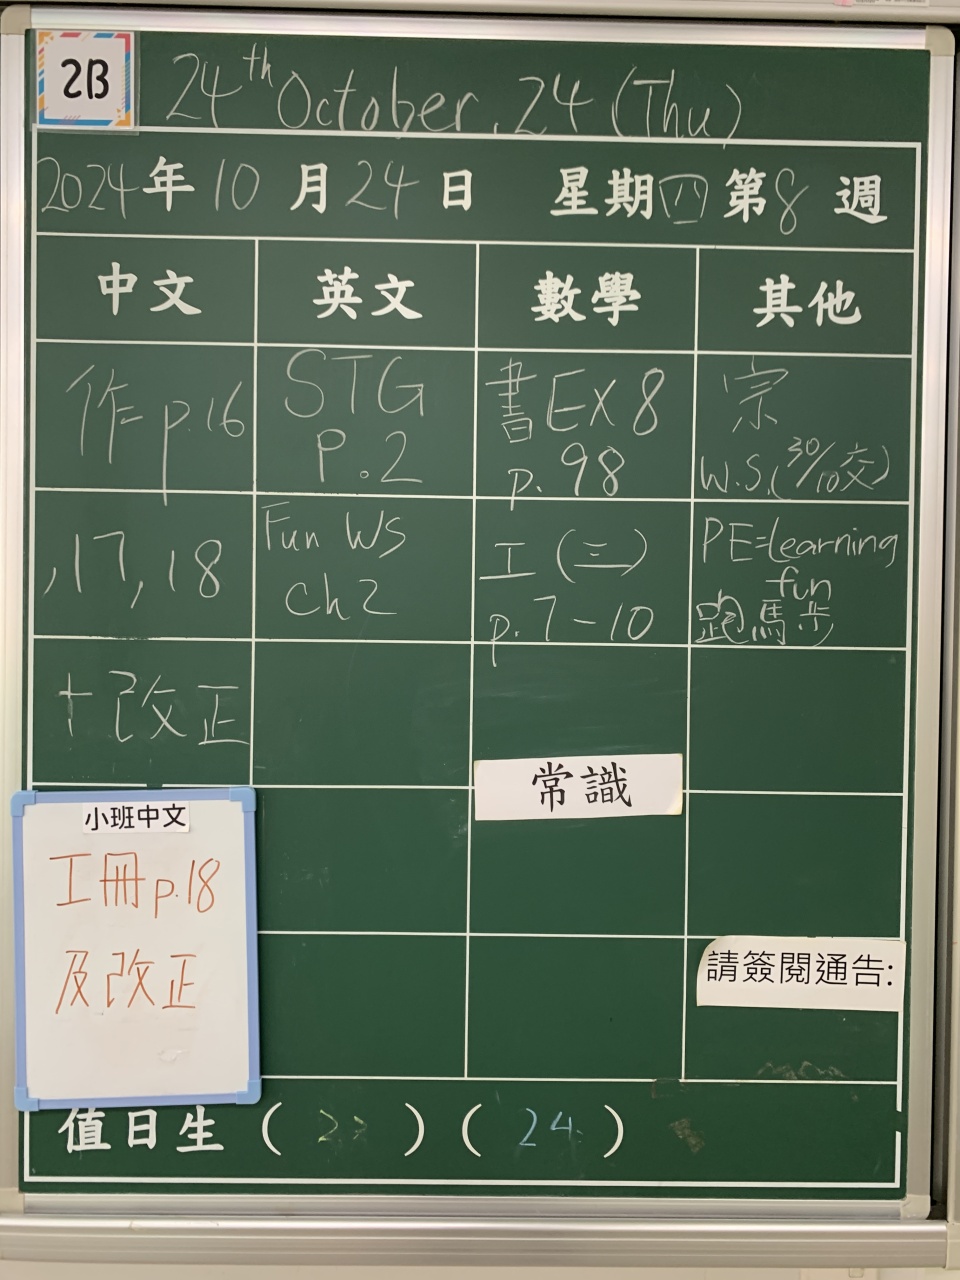 2B
24th October, 24 (Thu)
2024年10月24日 星期四第8週
中文 英文 數學 其他
作p.16
,17,18
+改正
STG
P.2
Fun WS
Ch2
書Ex8
p.98
工(三)
p.7-10
常識
宗
W.S.(30/10交)
PE=learning
fun
跑馬步
請簽閱通告:
小班中文
工冊p.18
及改正
值日生( )(24)